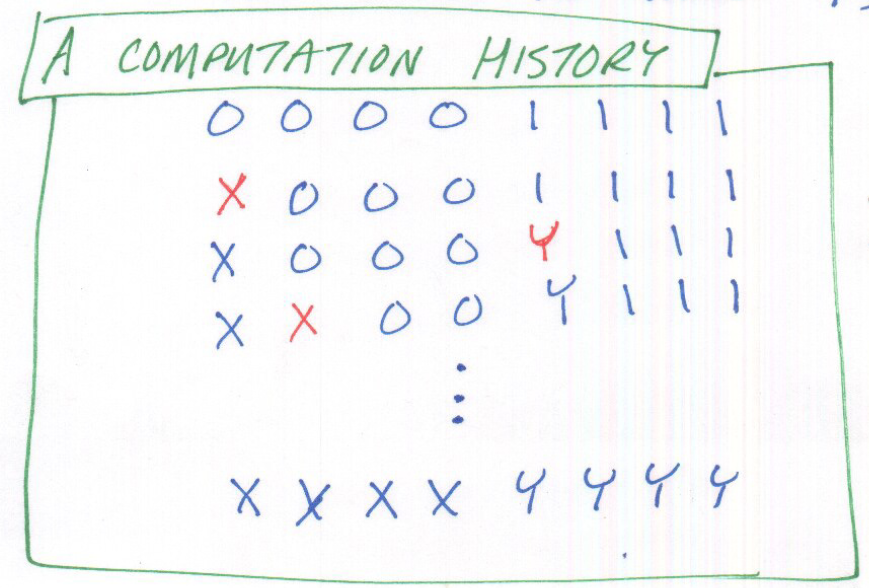 A COMPUTATION HISTORY
0 0 0 0 1 1 1 1
X 0 0 0 1 1 1 1
X 0 0 0 Y 1 1 1
X X 0 0 Y 1 1 1
⋮
X X X X Y Y Y Y